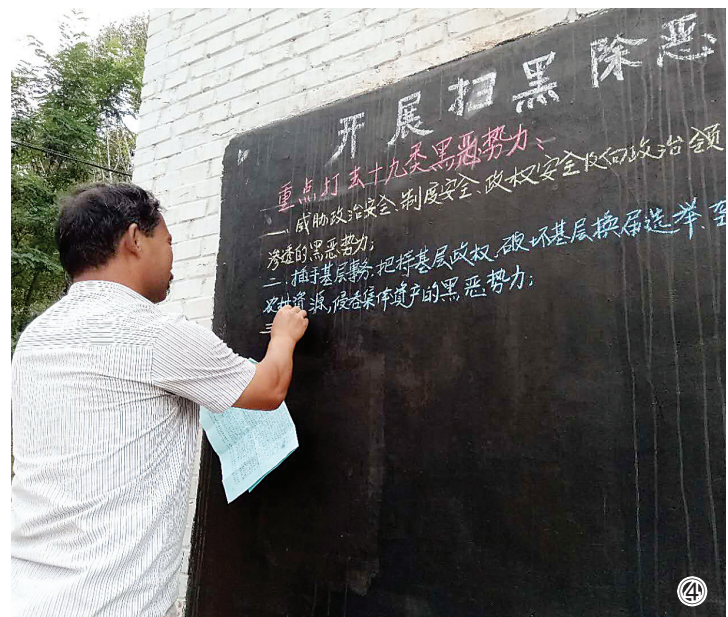 开展扫黑除恶
重点打击十九类黑恶势力、
一、威胁政治安全、制度安全、政权安全及向政治领
渗透的黑恶势力;
二、插手基层事务、把持基层政权、破坏基层换届选举、
农村资源,侵吞集体资产的黑恶势力;
三
④